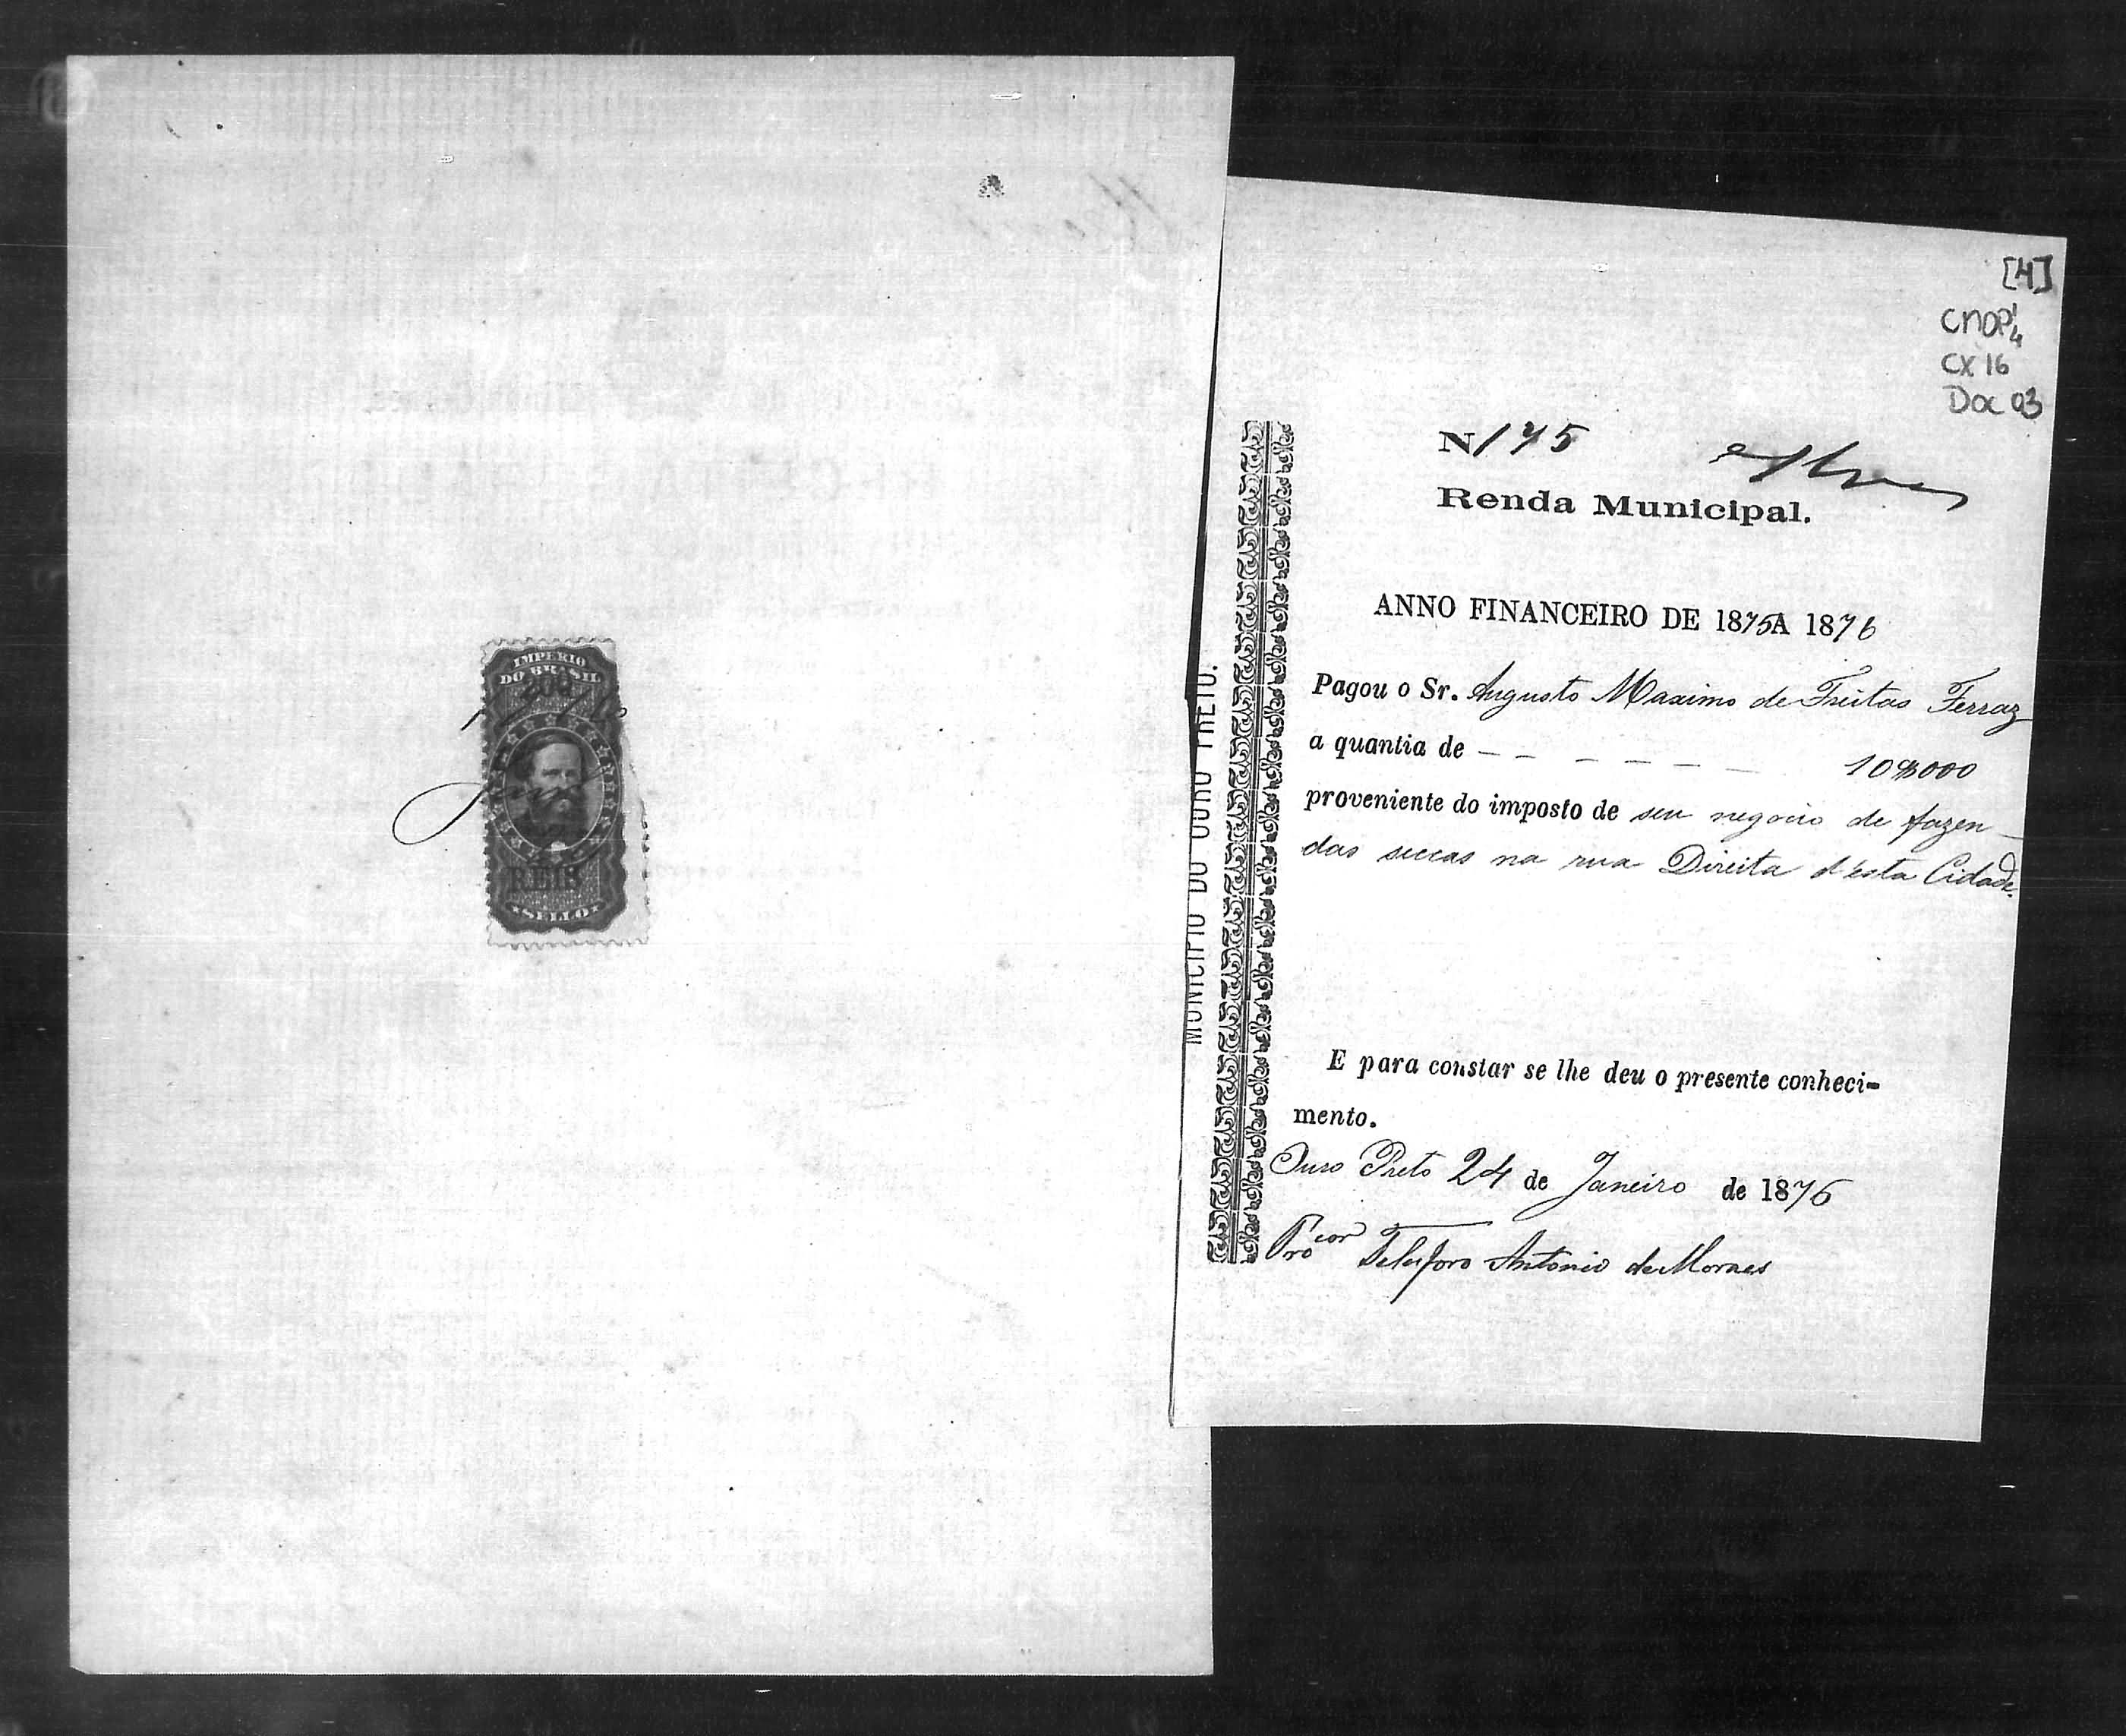 IMPERIO
DO BRASIL
200
REIS
SELLO
[4]
CMOP
CX 16
Doc 03
N 175
Renda Municipal.
ANNO FINANCEIRO DE 1875 A 1876
Pagou o Sr. Augusto Maximo de Freitas Ferraz
a quantia de - - - - - - 10$000
proveniente do imposto de seu negocio de fazen-
das seccas na rua Direita d'esta Cidade.
E para constar se lhe deu o presente conheci-
mento.
Ouro Preto 24 de Janeiro de 1876
Procor Telesforo Antonio de Moraes
MUNICIPIO DO OURO PRETO.